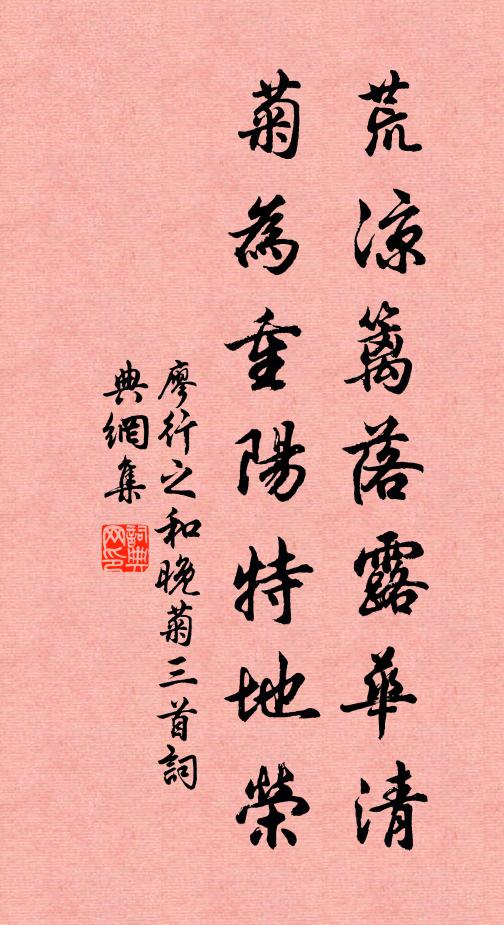 荒涼籬落露華清
菊為重陽特地榮
廖行之和晚菊三首詞
典網集
詞典
网印